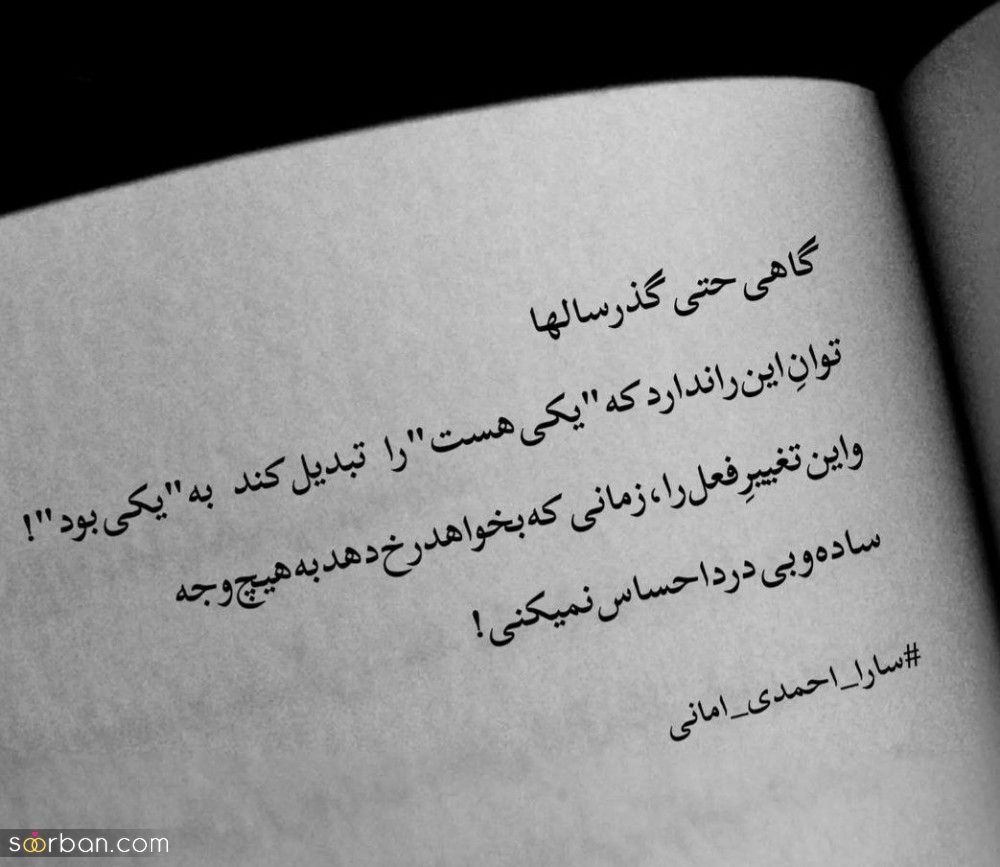 گاهی حتی گذر سالها
توانِ این را ندارد که "یکی هست" را تبدیل کند به "یکی بود"!
و این تغییرِ فعل را، زمانی که بخواهد رخ دهد به هیچ وجه
ساده و بی درد احساس نمیکنی!
#سارا_احمدی_امانی
soorban.com